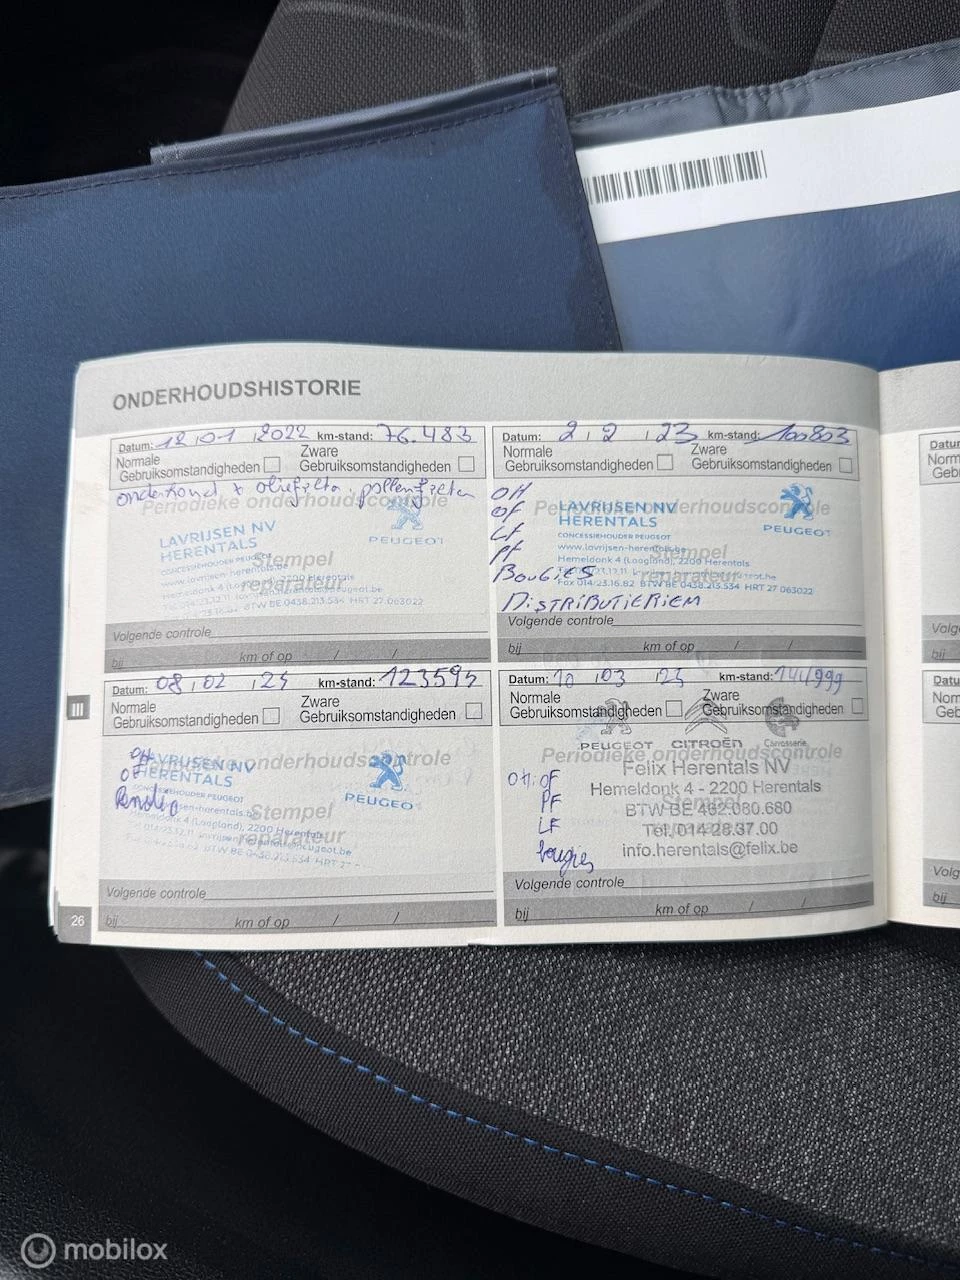 ONDERHOUDSHISTORIE
Datum: 12 / 01 / 2022 km-stand: 76.483
Normale Gebruiksomstandigheden
Zware Gebruiksomstandigheden
onderhoud + oliefilter, pollenfilter
Periodieke onderhoudscontrole
LAVRIJSEN NV
HERENTALS
CONCESSIEHOUDER PEUGEOT
www.lavrijsen-herentals.be
Hemeldonk 4 (Laagland), 2200 Herentals
BTW BE 0438.213.534 HRT 27 063022
PEUGEOT
Stempel
reparateur
Volgende controle
bij km of op / /
Datum: 2 / 2 / 23 km-stand: 100803
Normale Gebruiksomstandigheden
Zware Gebruiksomstandigheden
OH
OF
LF
PF
BOUGIES
DISTRIBUTIERIEM
Periodieke onderhoudscontrole
LAVRIJSEN NV
HERENTALS
CONCESSIEHOUDER PEUGEOT
www.lavrijsen-herentals.be
Hemeldonk 4 (Laagland), 2200 Herentals
Fax 014/23.16.82 BTW BE 0438.213.534 HRT 27 063022
PEUGEOT
Stempel
reparateur
Volgende controle
bij km of op / /
III
Datum: 08 / 02 / 24 km-stand: 123595
Normale Gebruiksomstandigheden
Zware Gebruiksomstandigheden
OH
OF
Periodieke onderhoudscontrole
LAVRIJSEN NV
HERENTALS
CONCESSIEHOUDER PEUGEOT
Hemeldonk 4 (Laagland), 2200 Herentals
PEUGEO
Stempel
reparateur
Volgende controle
bij km of op / /
Datum: 10 / 03 / 25 km-stand:
Normale Gebruiksomstandigheden
Zware Gebruiksomstandigheden
PEUGEOT CITROËN Carrosserie
Periodieke onderhoudscontrole
OH. OF
PF
LF
bougies
Felix Herentals NV
Hemeldonk 4 - 2200 Herentals
BTW BE 462.080.680
Tel. 014 28.37.00
info.herentals@felix.be
Stempel
reparateur
Volgende controle
bij km of op / /
26
Datum
Norm
Gebr
Volg
bij
Datu
Norm
Geb
Volg
bij
mobilox